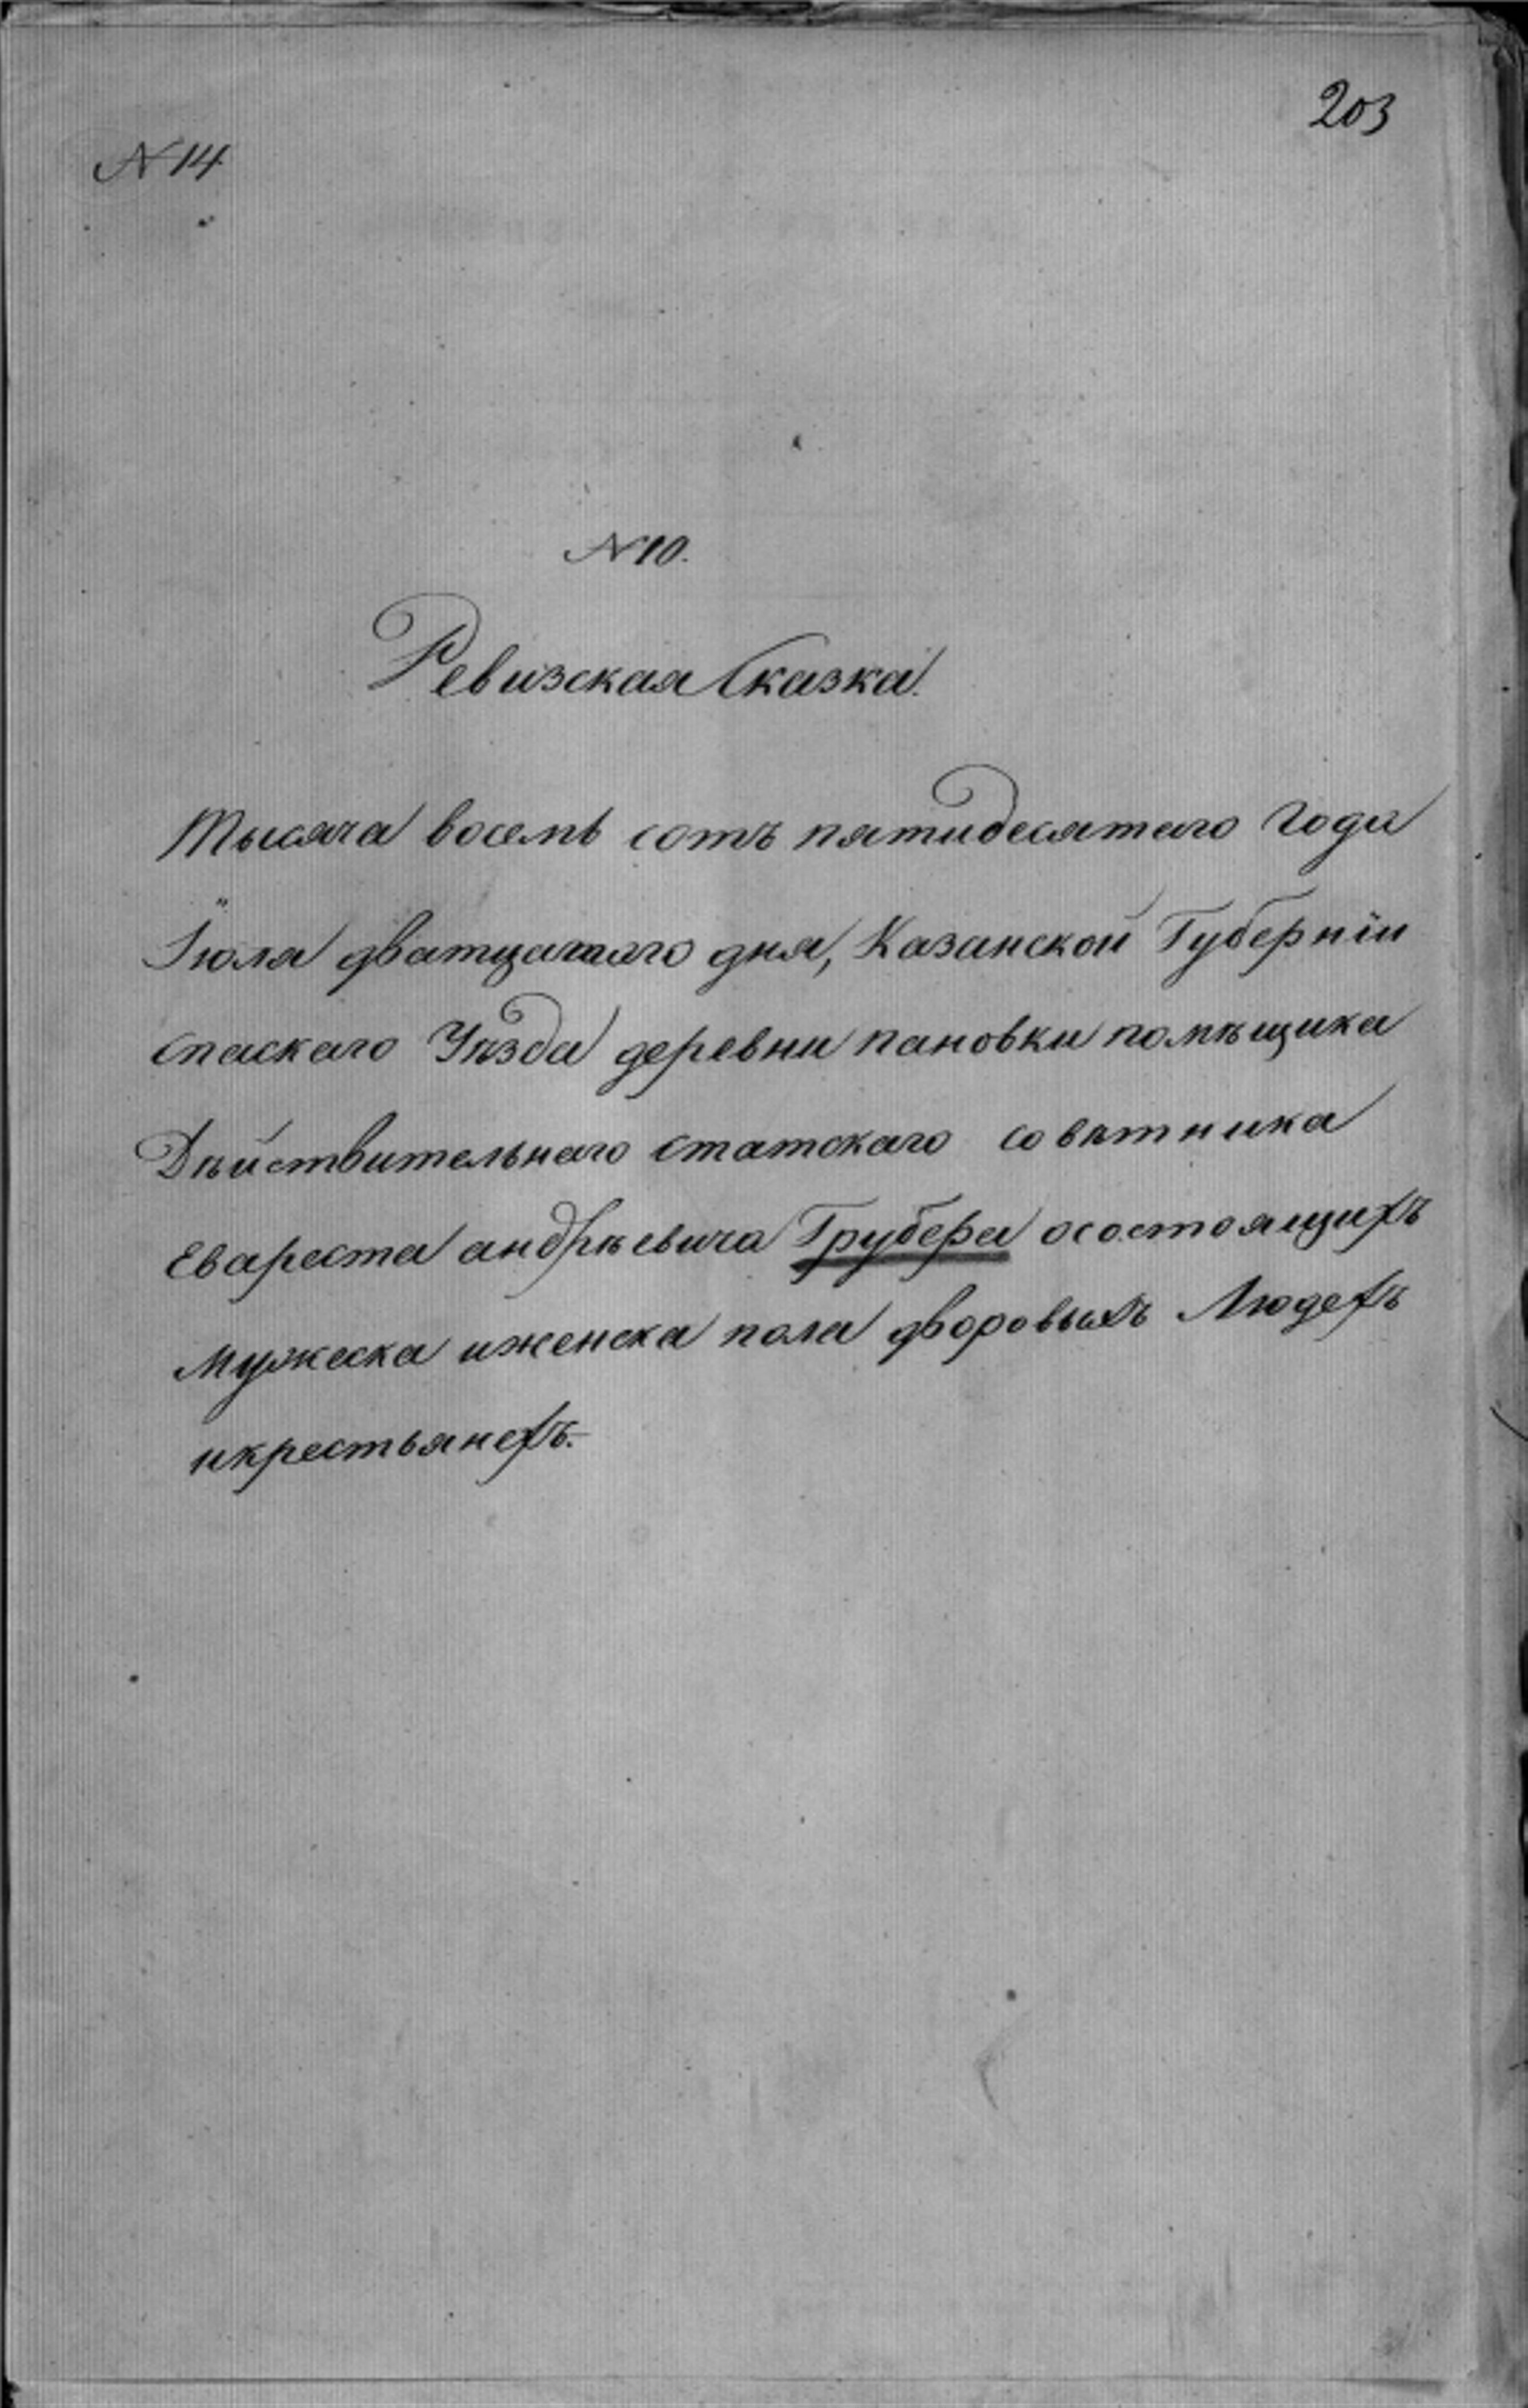 203
N 14
N 10.
Ревизская Сказка.
Тысяча восемь сотъ пятидесятаго Года
Іюля дватцатаго дня, Казанской Губерніи
спаскаго Уѣзда деревни пановки помѣщика
Дѣйствительнаго статскаго совѣтника
Евареста андрѣевича Грубера осостоящихъ
Мужеска иженска пола дворовыхъ Людехъ
икрестьянехъ.